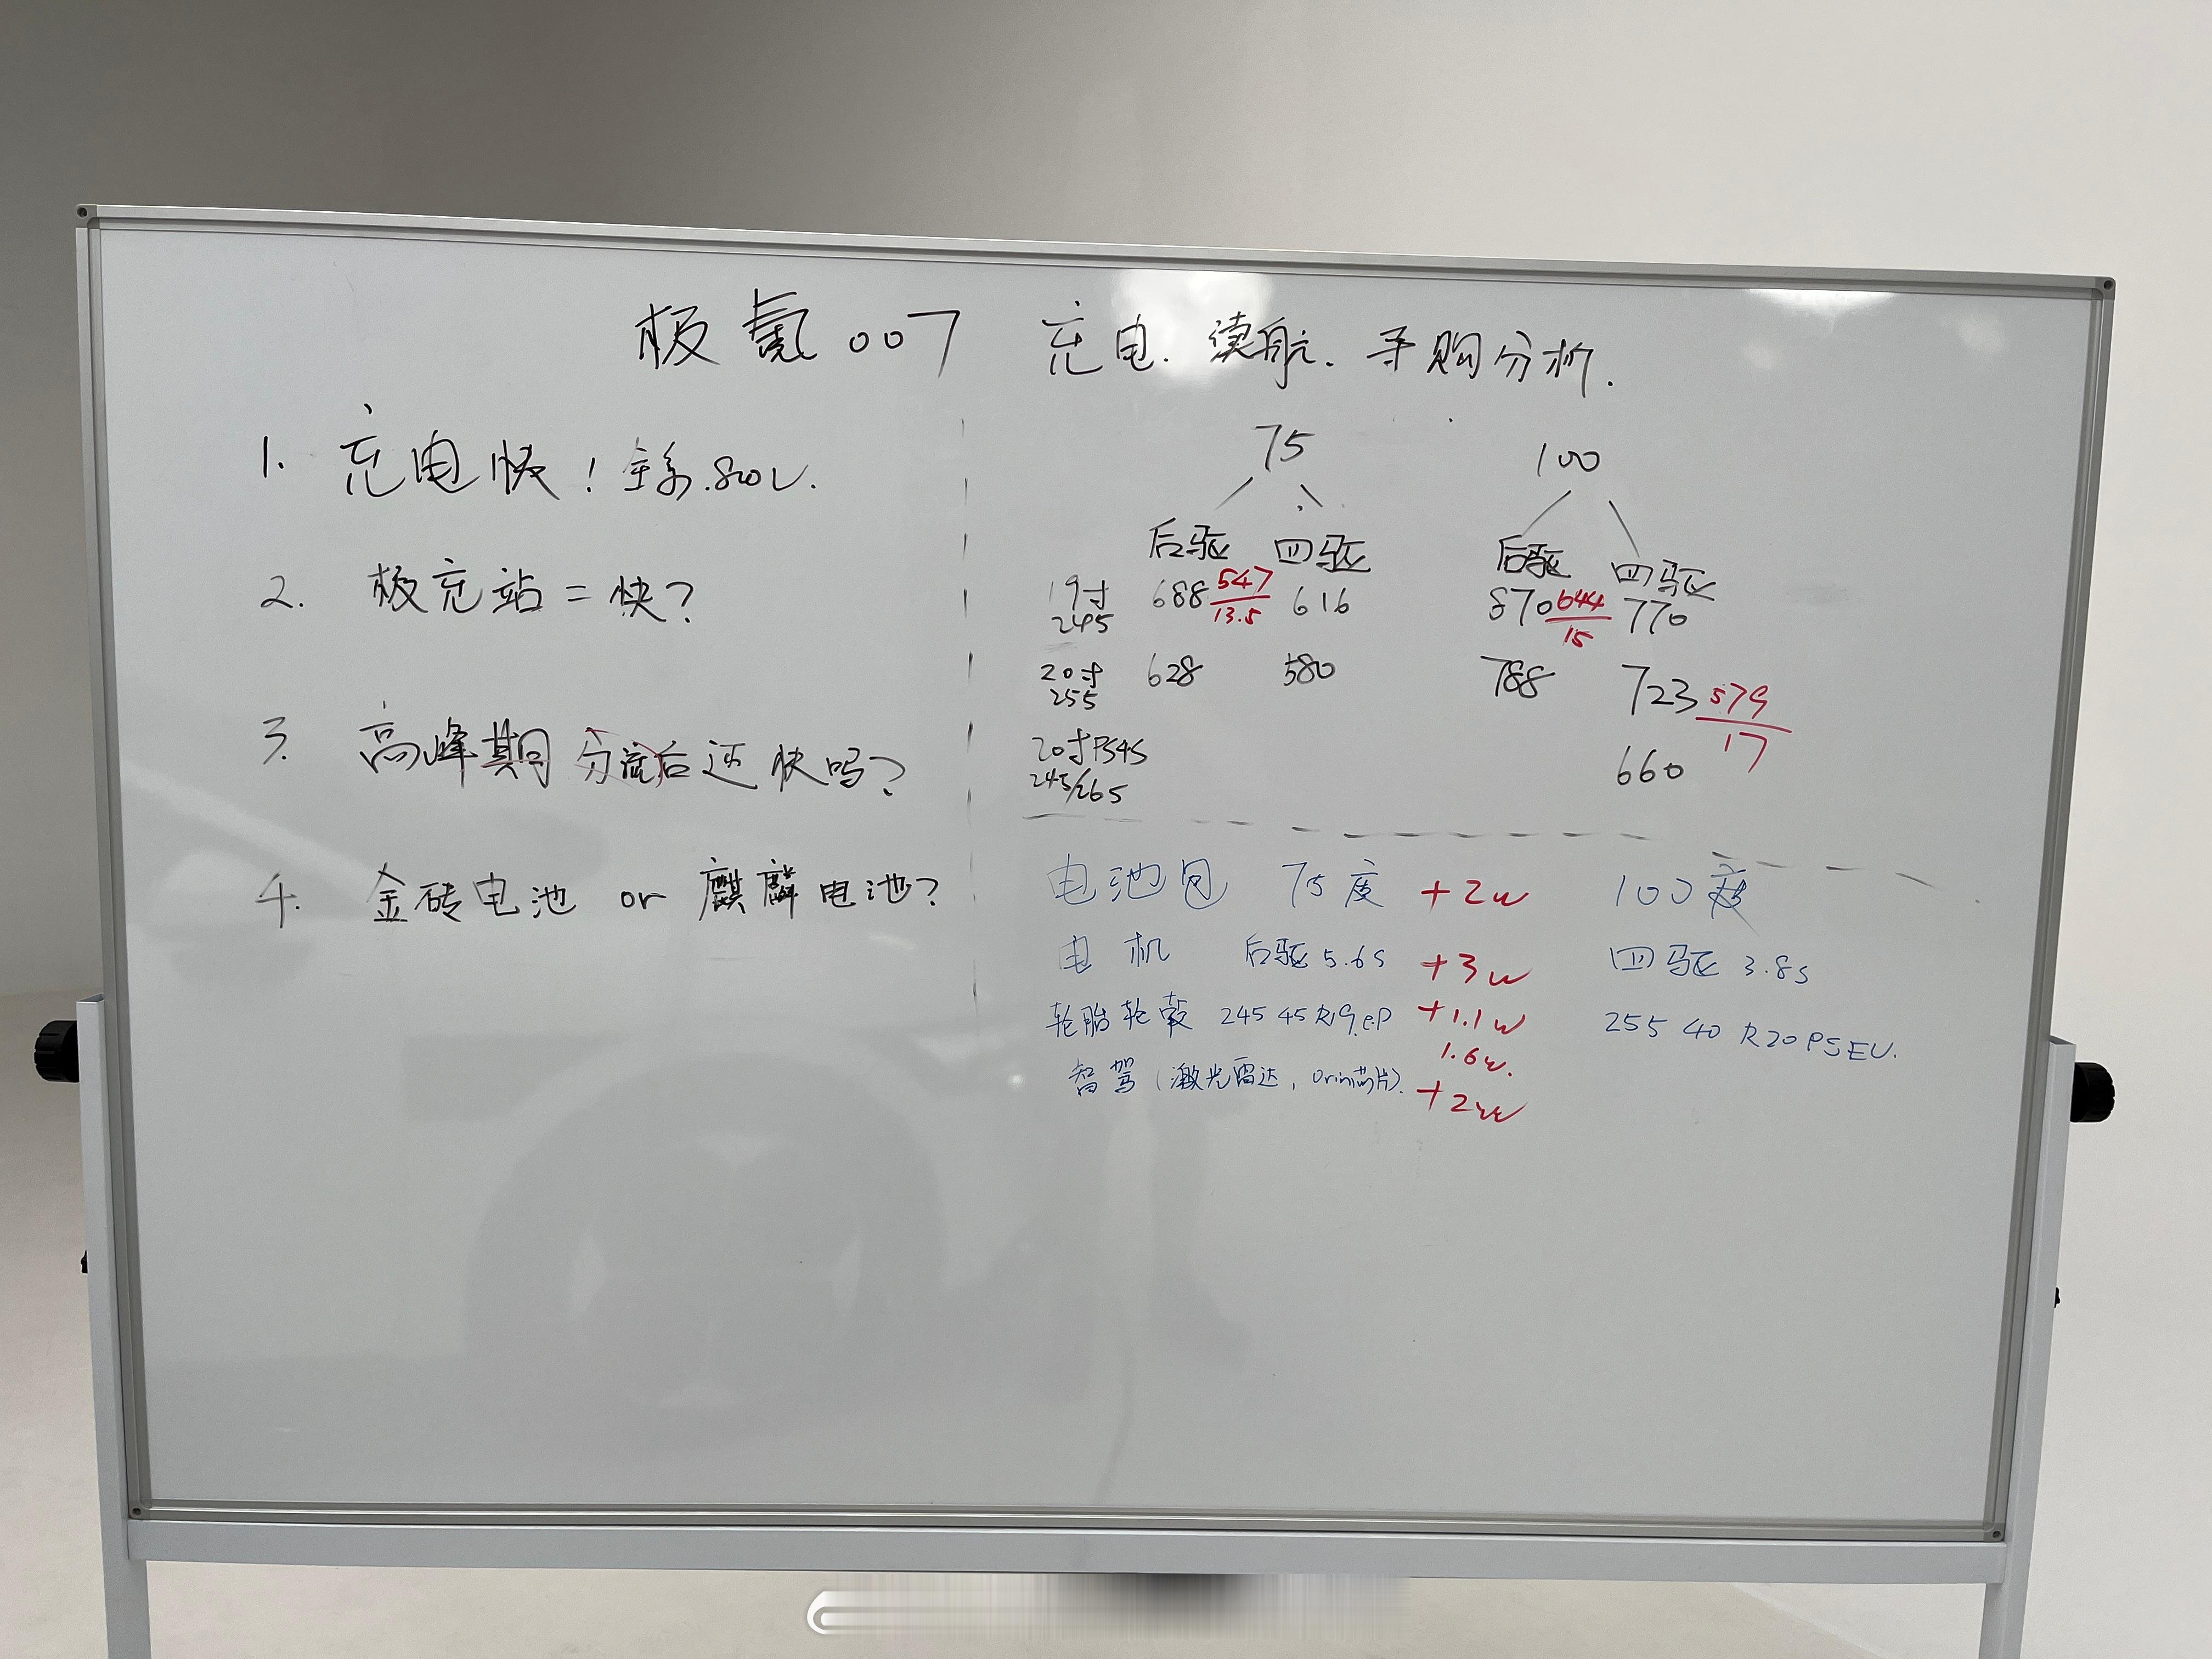 极氪007 充电.续航.导购分析.
1. 充电快!全系.800V.
2. 极充站=快?
3. 高峰期分流后还快吗?
4. 金砖电池 or 麒麟电池?
75 100
后驱 四驱 后驱 四驱
19寸 688 547/13.5 616 870 644/15 770
245
20寸 628 580 788 723 579/17
255
20寸PS4S 660
245/265
电池包 75度 +2w 100度
电机 后驱5.6s +3w 四驱3.8s
轮胎轮毂 245 45 R19.eP +1.1w 255 40 R20 PSEV.
1.6w.
智驾(激光雷达,Orin芯片). +2w